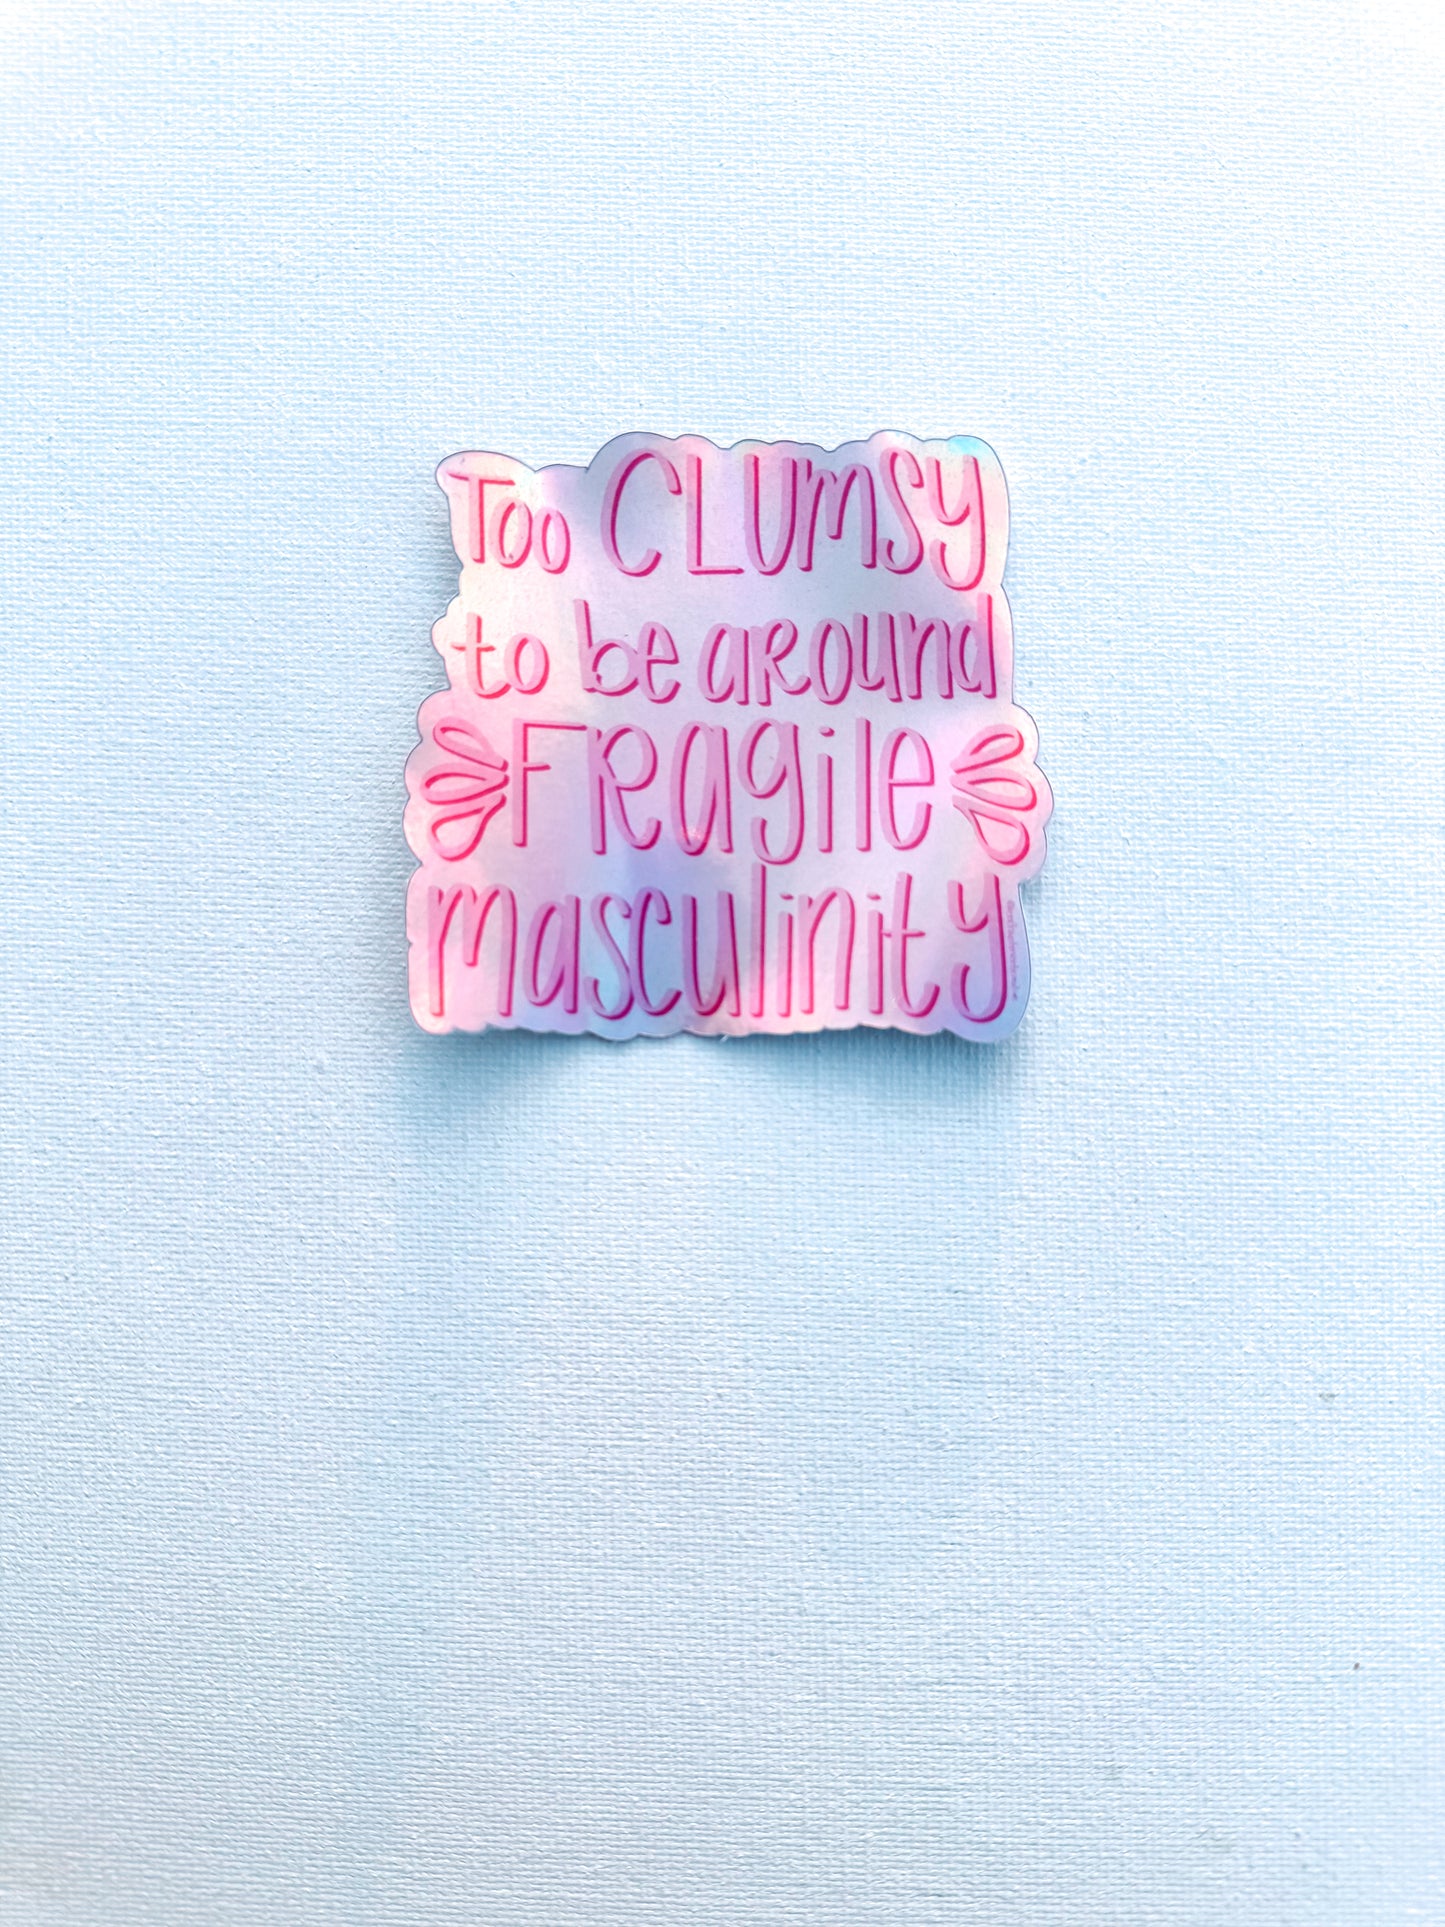 Too CLUMSY
to be around
Fragile
masculinity